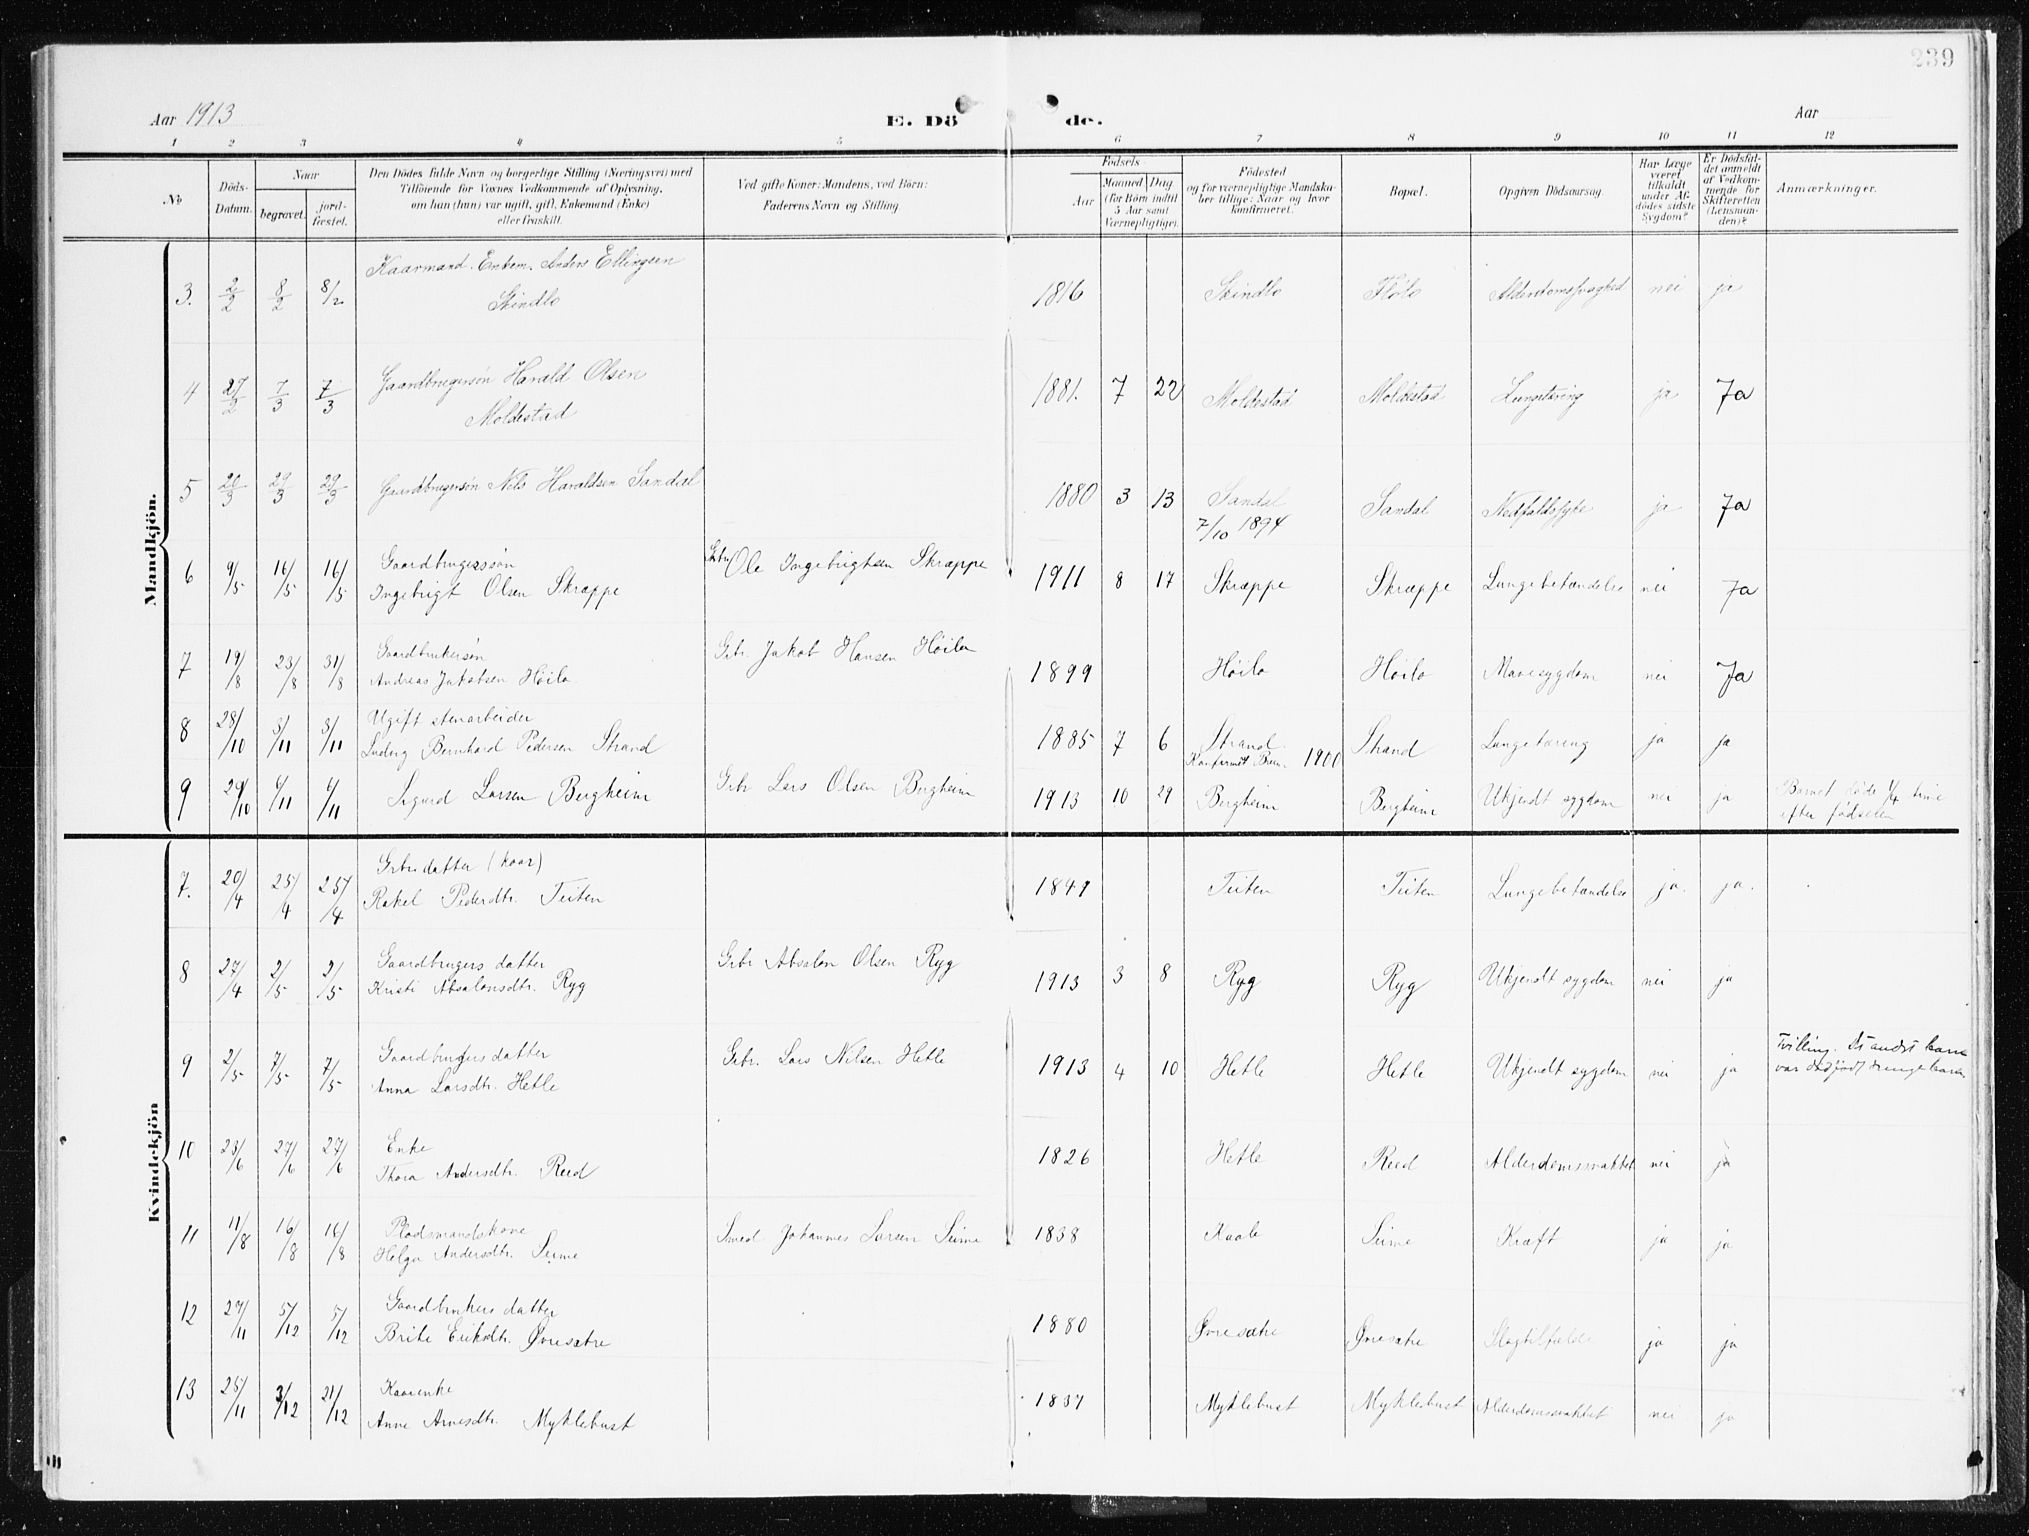 239
Aar 1913
E. Dö de.
Aar
1 2 3 4 5 6 7 8 9 10 11 12
No
Döds-Datum.
Naar
begravet.
jord-fæstet.
Den Dödes fulde Navn og borgerlige Stilling (Næringsvei) med
Tilföiende for Voxnes Vedkommende af Oplysning,
om han (hun) var ugift, gift, Enkemand (Enke)
eller fraskilt.
Ved gifte Koner: Mandens, ved Börn:
Faderens Navn og Stilling
Födsels
Aar
Maaned Dag
(for Börn indtil
5 Aar samt
Værnepligtige).
Födested
og for værnepligtige Mandska-
ber tillige: Naar og hvor
konfirmeret.
Bopæl.
Opgiven Dödsaarsag.
Har Læge
været
tilkaldt
under Af-
dödes sidste
Sygdom?
Er Dödsfal-
det anmeldt
af Vedkom-
mende for
Skifteretten
(Lensman-
den)?
Anmærkninger.
Mandkjön.
3. 2/2 8/2 8/2 Kaarmand. Enkem. Anders Ellingsen
Skindlo 1816 Skindlo Flölo Alderdomssvaghed nei ja
4 27/2 7/3 7/3 Gaardbrugersön Harald Olsen
Moldestad 1881. 7 22 Moldestad Moldestad Lungetæring ja Ja
5 20/3 29/3 29/3 Gaardbrugersön Nils Haraldsen Sandal 1880 3 13 Sandal
7/10 1894 Sandal Nedfaldssyke ja Ja
6 9/5 16/5 16/5 Gaardbrugerssön
Ingebrigt Olsen Skræppe Gbr Ole Ingebrigtsen Skræppe 1911 8 17 Skræppe Skræppe Lungebetændelse nei Ja
7 19/8 23/8 31/8 Gaardbrukersön
Andreas Jakobsen Höilo Grbr. Jakob Hansen Höilo 1899 Höilo Höilo Mavesygdom nei Ja
8 28/10 3/11 3/11 Ugift stenarbeider
Ludvig Bernhard Pedersen Strand 1885 7 6 Strand.
Konfirmet 1900 Strand Lungetæring ja ja
9 29/10 6/11 6/11 Sigurd Larsen Bergheim Grbr Lars Olsen Bergheim 1913 10 29 Bergheim Bergheim Ukjendt sygdom nei ja Barnet döde 1/4 time
efter födselen
Kvindekjön
7. 20/4 25/4 25/4 Grbrdatter (kaar)
Rakel Pedersdtr. Tuiten 1841 Tuiten Tuiten Lungebetændelse ja. ja.
8 27/4 2/5 2/5 Gaardbrugers datter
Kristi Absalonsdtr. Ryg Grbr Absalon Olsen Ryg 1913 3 8 Ryg Ryg Ukjendt sygdom nei ja
9 2/5 7/5 7/5 Gaardbrugers datter
Anna Larsdtr. Hetle Grbr. Lars Nilsen Hetle 1913 4 10 Hetle Hetle Ukjendt sygdom nei ja Tvilling. Det andet barn
var dødfødt drengebarn
10 23/6 27/6 27/6 Enke
Thora Andersdtr. Reed 1826 Hetle Reed Alderdomssvakhet nei ja
11 11/8 16/8 16/8 Pladsmandskone
Helga Andersdtr. Seime Smed Johannes Larsen Seime 1838 Kaale Seime Kræft ja ja
12 29/11 5/12 5/12 Gaardbrukers datter
Brite Eriksdtr. Øvresætre 1880 Øvresætre Øvresætre Slagtilfælde ja ja
13 25/11 3/12 21/12 Kaarenke
Anne Arnesdtr. Myklebust 1837 Myklebust Myklebust Alderdomssvakhet nei ja